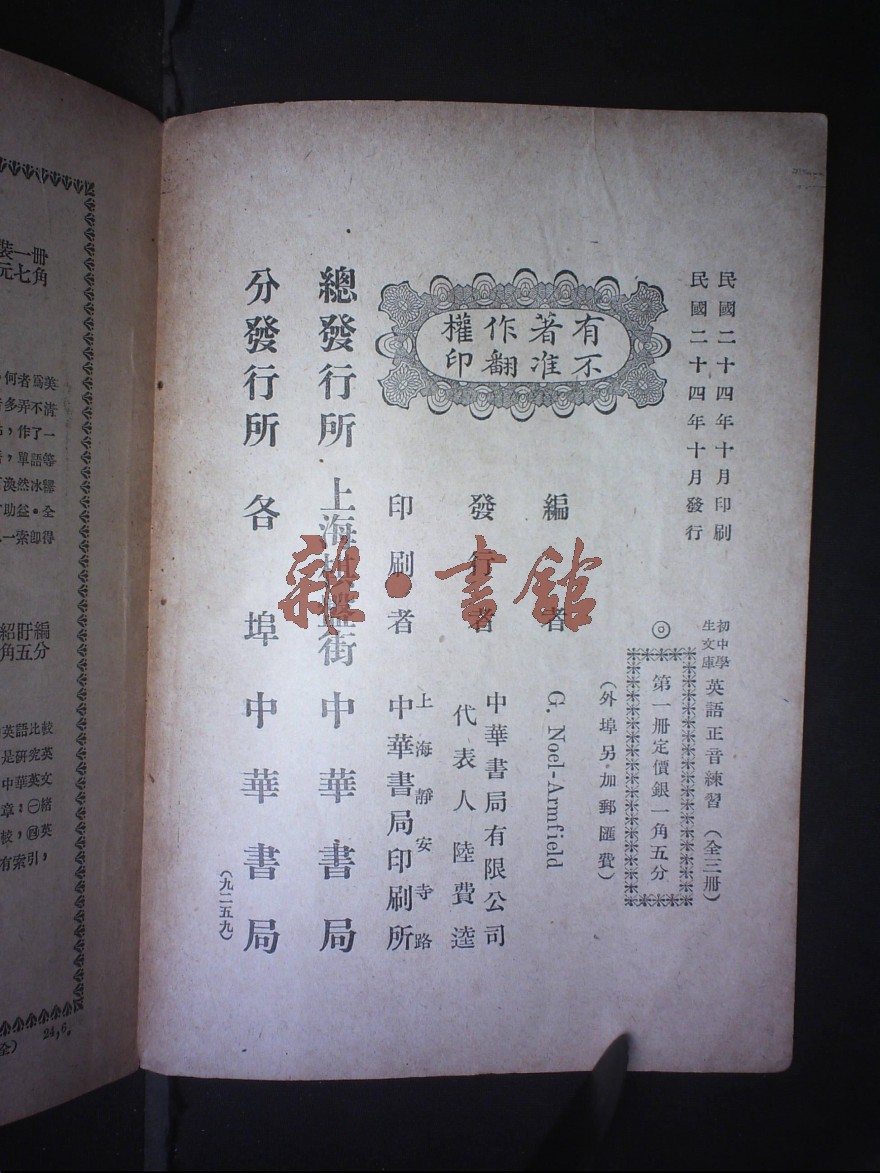 民國二十四年十月印刷
民國二十四年十月發行
有著作權
不准翻印
初中學生文庫
英語正音練習（全三冊）
◎
第一冊定價銀一角五分
（外埠另加郵匯費）
編者 G. Noel-Armfield
發行者 中華書局有限公司
代表人 陸費逵
印刷者 上海靜安寺路
中華書局印刷所
總發行所 上海棋盤街 中華書局
分發行所 各埠中華書局
（九二五九）
雜·書館
裝一冊
元七角
何者爲英
多弄不清
，作了一
，單語等
渙然冰釋
助益。全
一索即得
紹盱編
角五分
英語比較
是研究英
中華英文
章：㊀緒
較，㊃英
有索引，
24,6.